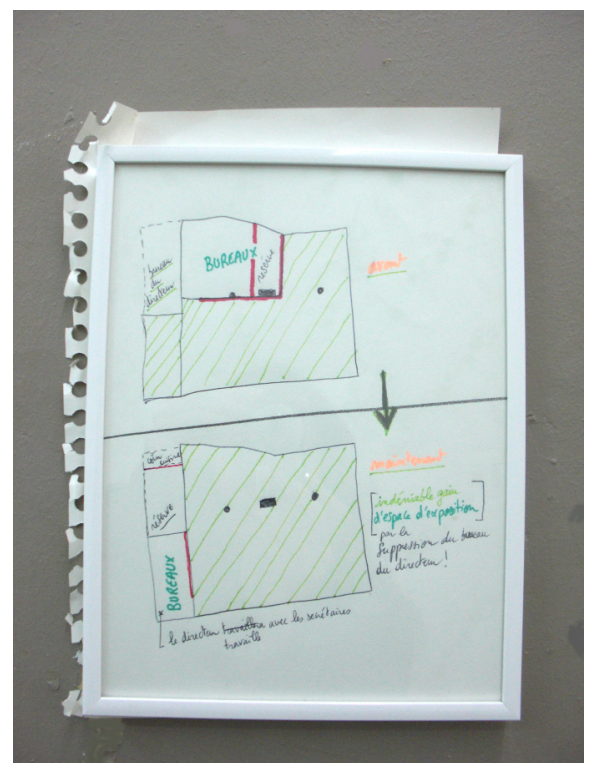 bureau
du
directeur
BUREAUX
réserve
avant
coin
cuisine
réserve
BUREAUX
maintenant
indéniable gain
d'espace d'exposition
par la
suppression du bureau
du directeur !
le directeur travaillera avec les secrétaires
travaille